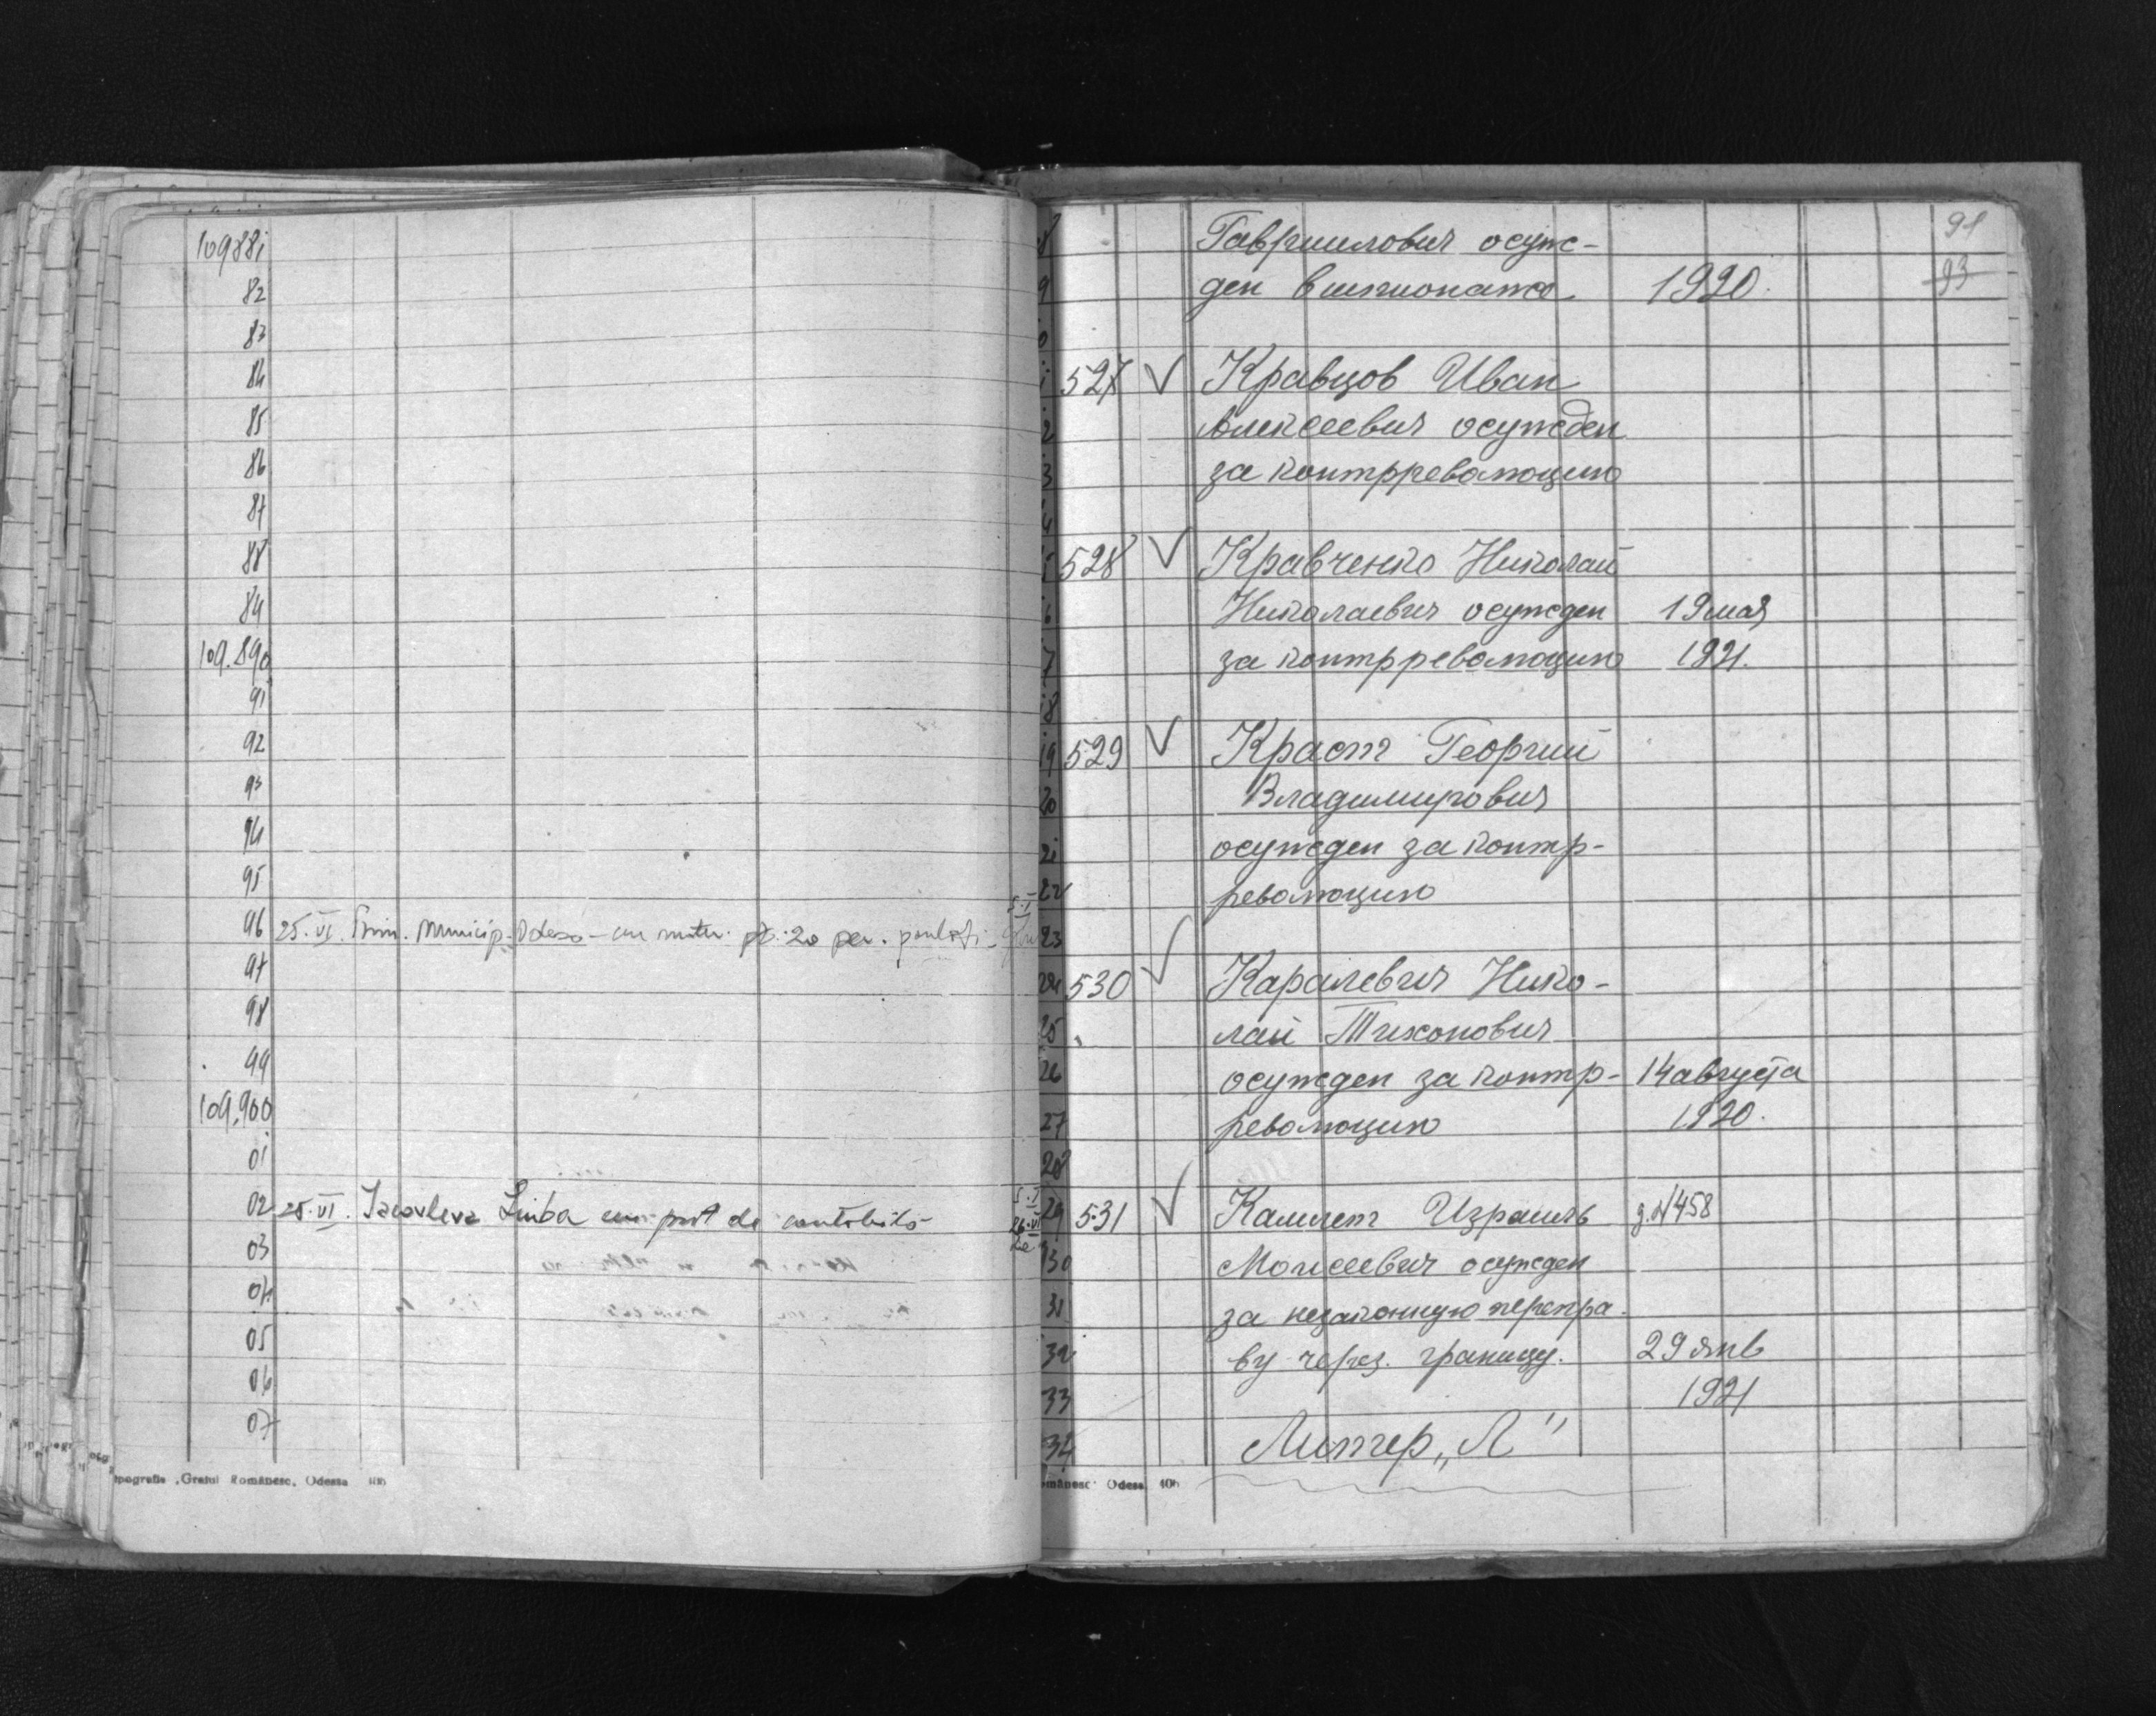 109881
82
83
84
85
86
87
88
89
109.890
91
92
93
94
95
96 25.VI. Prim. Municip. Odesa - cu pt. 20 per.
97
98
99
109.900
01
02 25.VI. Iacovleva Liuba cu de
03
04
05
06
07
Tipografia „Graiul Românesc„ Odessa
91
93
Гавриилович осуж-
ден в шпионаже 1920.
527 ✓ Кравцов Иван
Алексеевич осужден
за контрреволюцию
528 ✓ Кравченко Николай
Николаевич осужден 19 мая
за контрреволюцию 1921.
529 ✓ Краст Георгий
Владимирович
осужден за контр-
революцию
530 ✓ Каралевич Нико-
лай Тихонович
осужден за контр- 14 августа
революцию 1920.
531 ✓ Камлет Израиль д. №458
Моисеевич осужден
за незаконную перепра-
ву через. границу. 29 янв
1921
Литер „Л"
omânesc Odesa